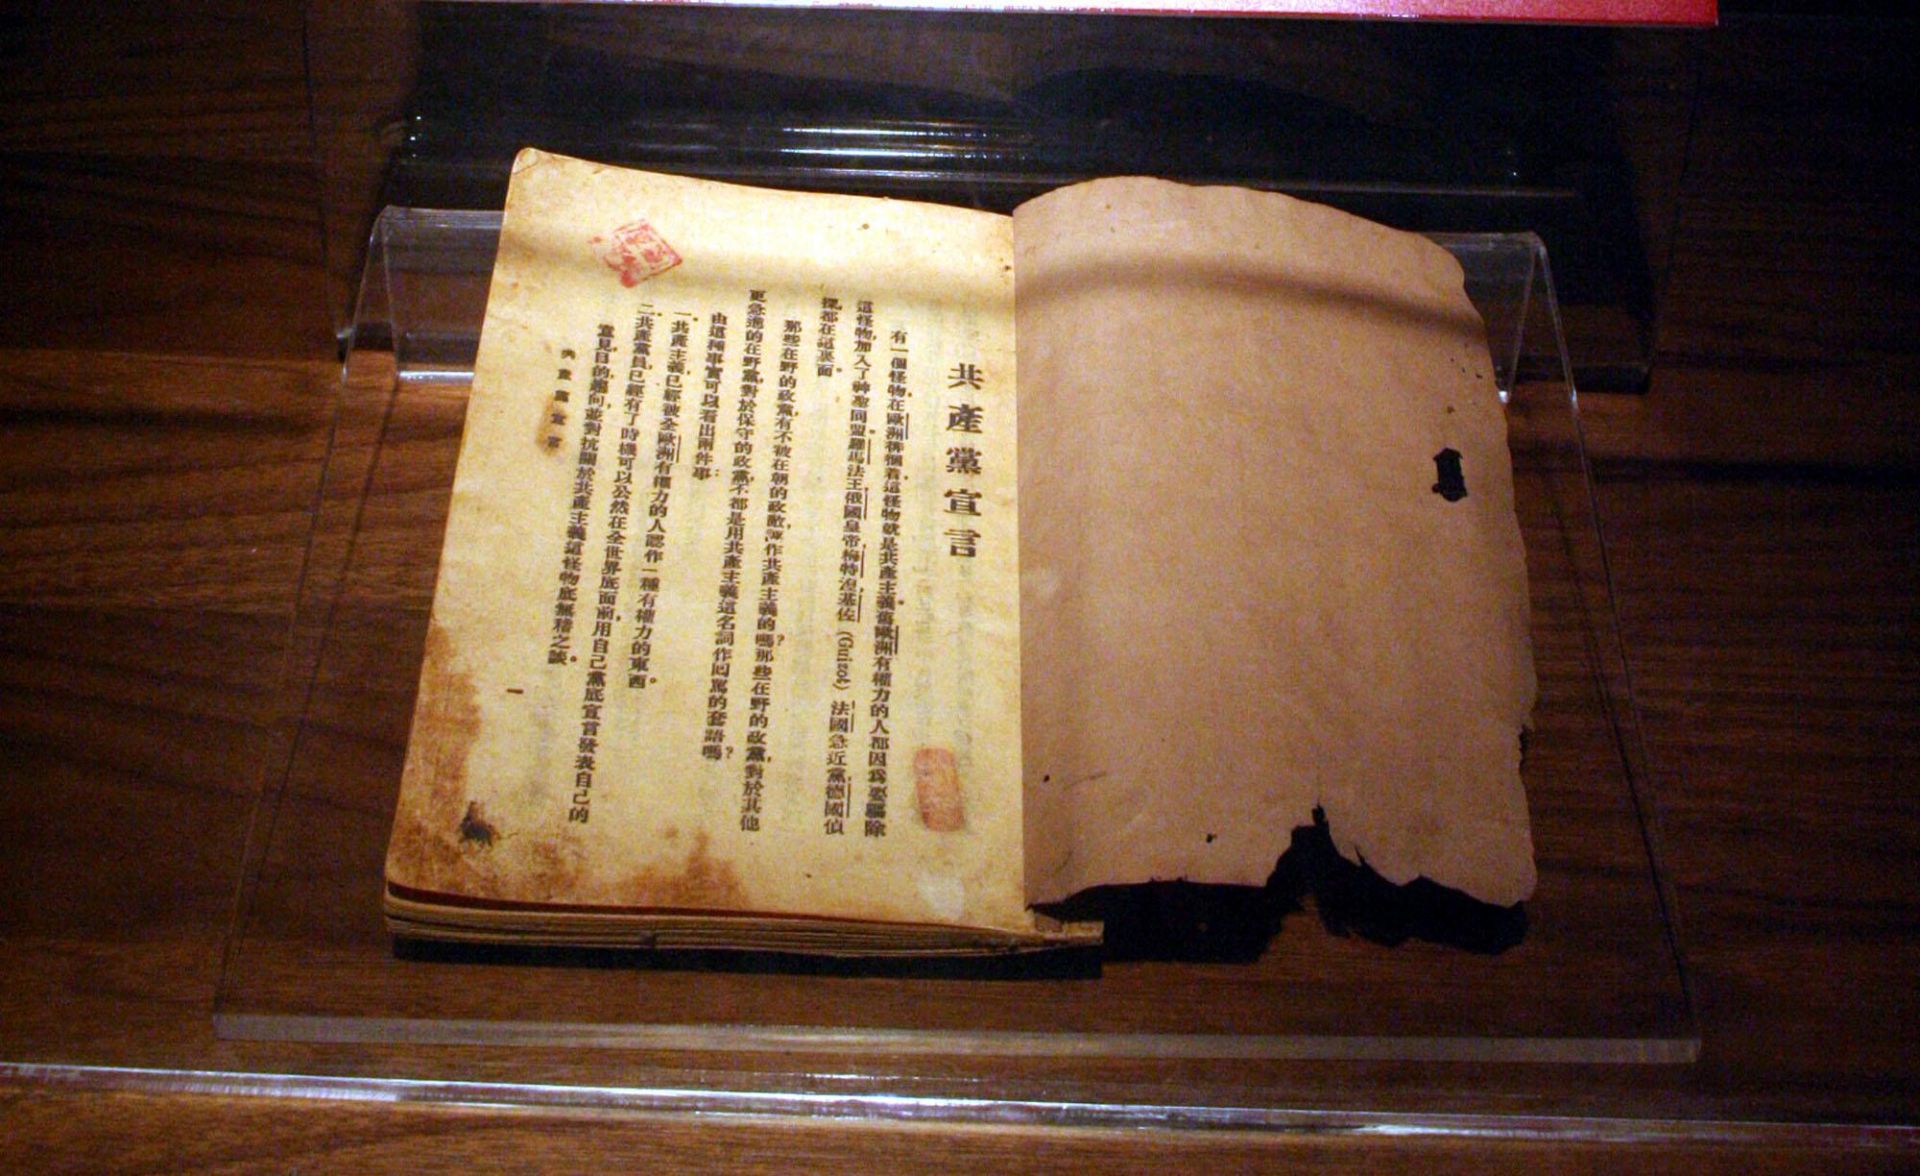 共產黨宣言
有一個怪物,在歐洲徘徊着,這怪物就是共產主義。舊歐洲有權力的人都因爲要驅除
這怪物,加入了神聖同盟。羅馬法王,俄國皇帝,梅特湼,基佐(Guizot),法國急近黨,德國偵
探,都在這裏面。
那些在野的政黨,有不被在朝的政敵,誣作共產主義的嗎?那些在野的政黨,對於其他
更急進的在野黨,對於保守的政黨,不都是用共產主義這名詞作回罵的套語嗎?
由這種事實可以看出兩件事:
一、共產主義,已經被全歐洲有權力的人認作一種有權力的東西。
二、共產黨員,已經有了時機可以公然在全世界底面前,用自己黨底宣言發表自己的
意見,目的,趨向,並對抗關於共產主義這怪物底無稽之談。
共產黨宣言
一